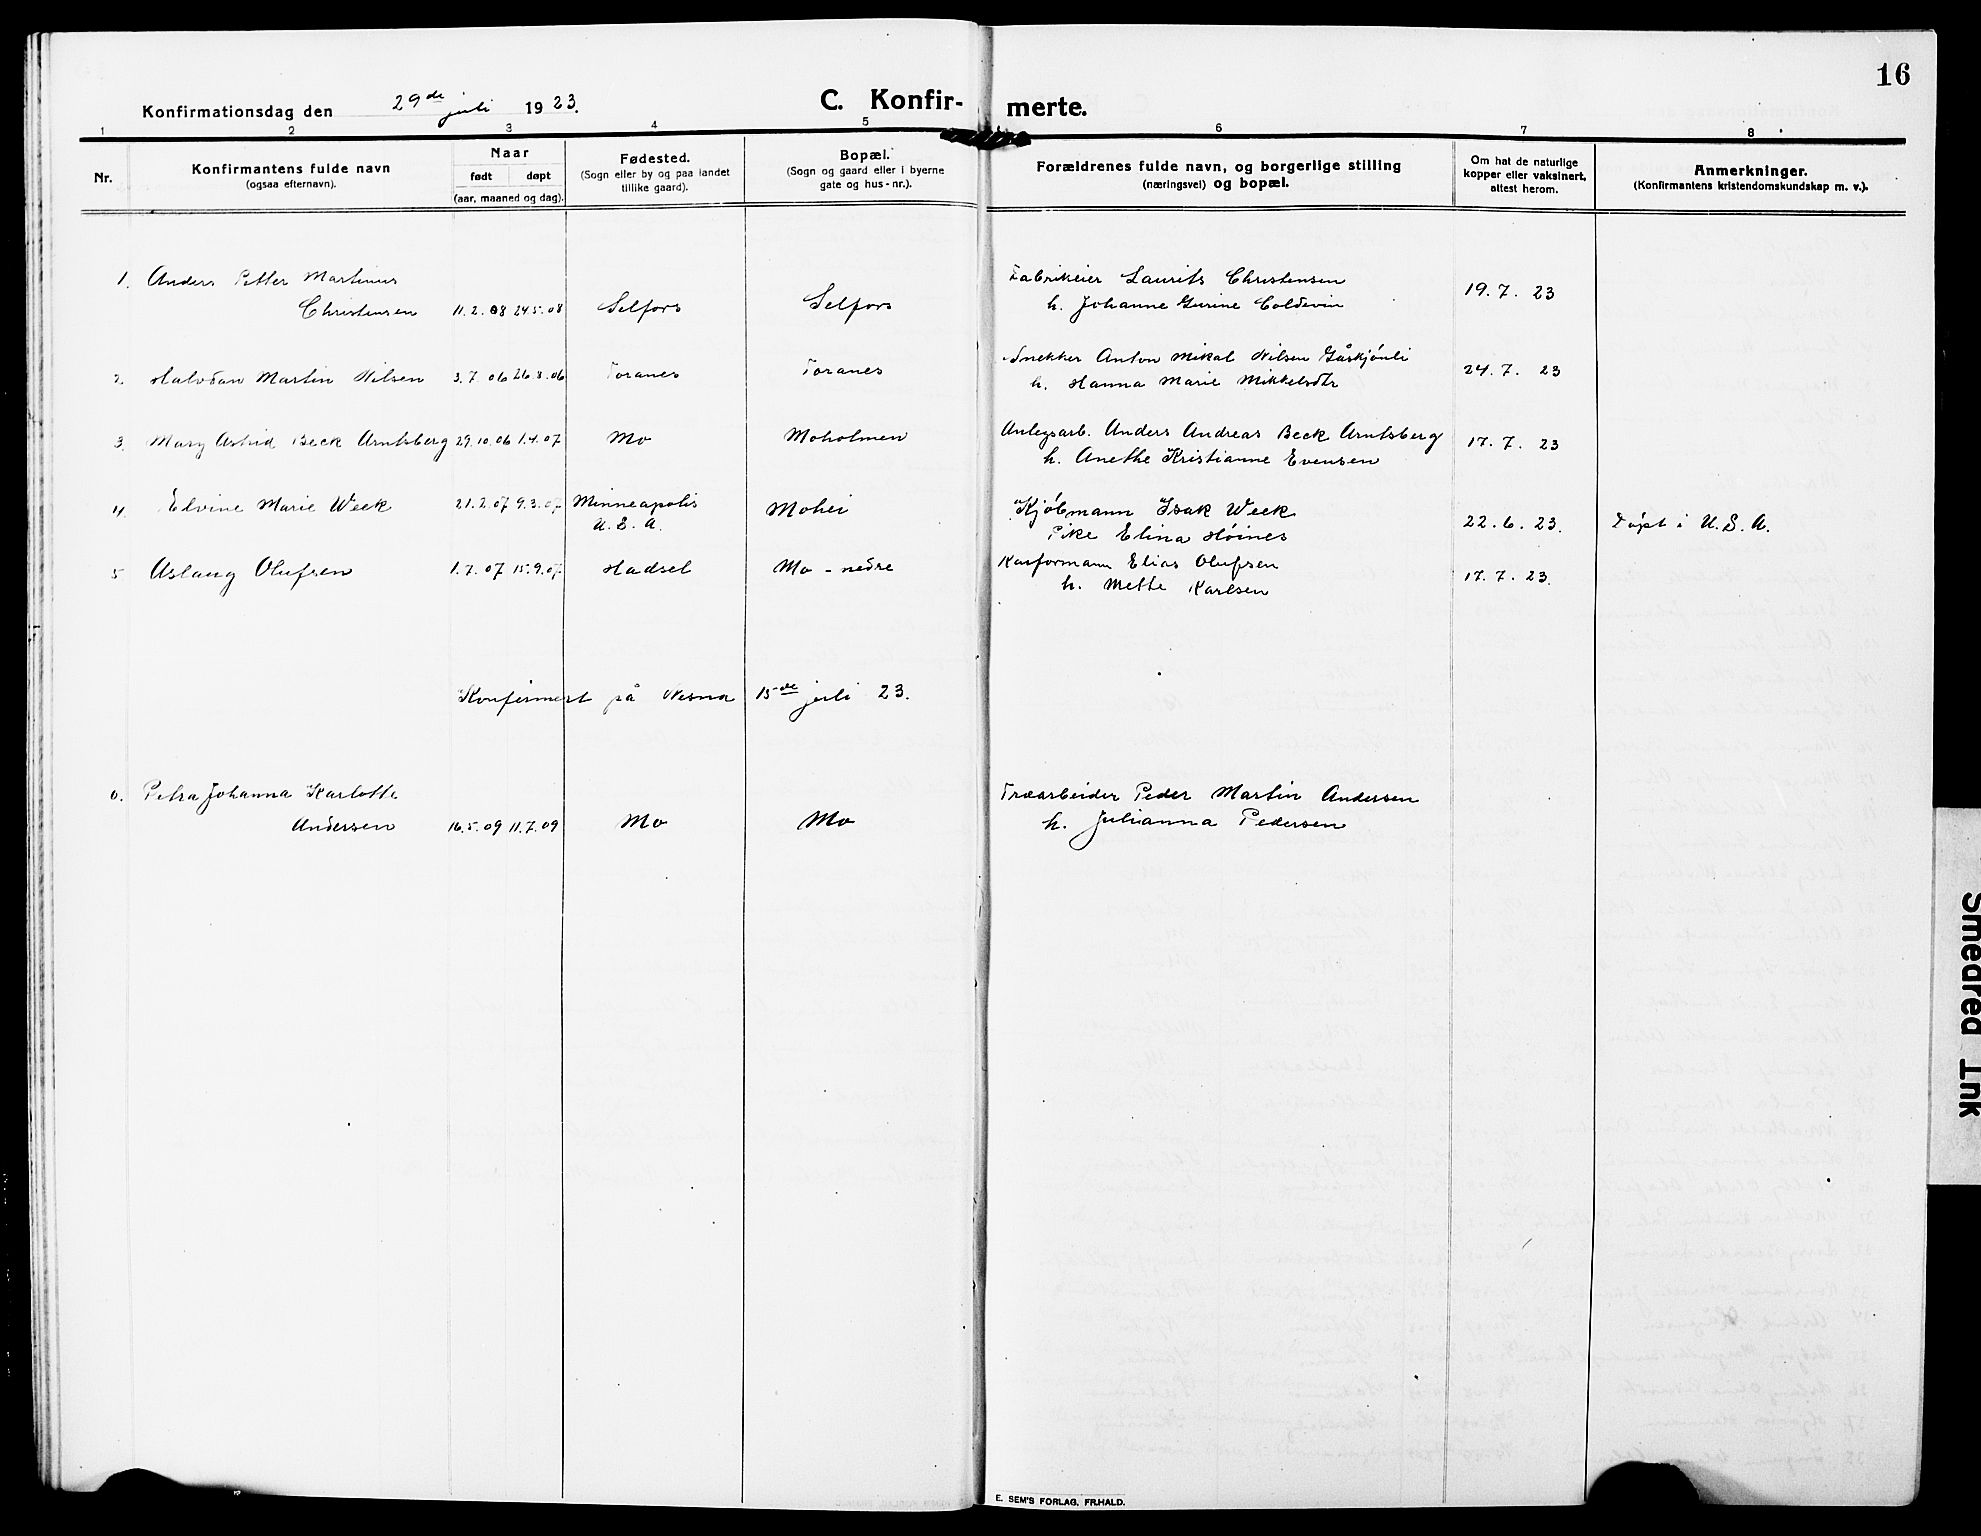 16
Konfirmationsdag den 29de juli 1923.
C. Konfir- merte.
1 2 3 4 5 6 7 8
Nr.
Konfirmantens fulde navn
(ogsaa efternavn).
Naar
født døpt
(aar, maaned og dag).
Fødested.
(Sogn eller by og paa landet
tillike gaard).
Bopæl.
(Sogn og gaard eller i byerne
gate og hus-nr.).
Forældrenes fulde navn, og borgerlige stilling
(næringsvei) og bopæl.
Om hat de naturlige
kopper eller vaksinert,
attest herom.
Anmerkninger.
(Konfirmantens kristendomskundskap m. v.).
1. Anders Petter Martinus
Christensen 11.2.08 24.5.08 Selfors Selfors
Fabrikeier Laurits Christensen
h. Johanne Gurine Coldevin
19.7.23
2. Halvdan Martin Nilsen 3.7.06 26.8.06 Toranes Toranes
Snekker Anton Mikal Nilsen Gåskjønli
h. Hanna Marie Mikkelsdtr
24.7.23
3. Mary Astrid Beck Arntsberg 29.10.06 1.4.07 Mo Moholmen
Anlegsarb. Anders Andreas Beck Arntsberg
h. Anethe Kristianne Evensen
17.7.23
4. Elvine Marie Week 21.2.07 9.3.07 Minneapolis
U.S.A.
Mohei
Kjøbmann Isak Week
Pike Elina Høines
22.6.23. Døpt i U.S.A.
5. Aslaug Olufsen 1.7.07 15.9.07 Hadsel Mo - nedre
Kaiformann Elias Olufsen
h. Mette Karlsen
17.7.23.
Konfirmert på Nesna 15de juli 23.
6. Petra Johanna Karlotte
Andersen 16.5.09 11.7.09 Mo Mo
Træarbeider Peder Martin Andersen
h. Julianna Pedersen
E. SEM'S FORLAG, FR.HALD.
Smeared Ink